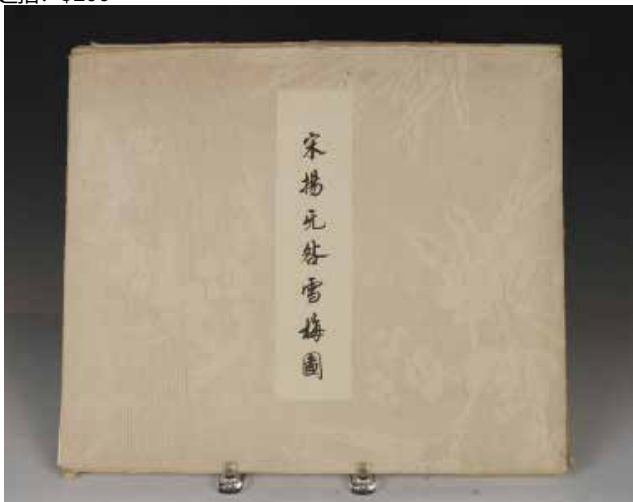 宋揚无咎雪梅圖